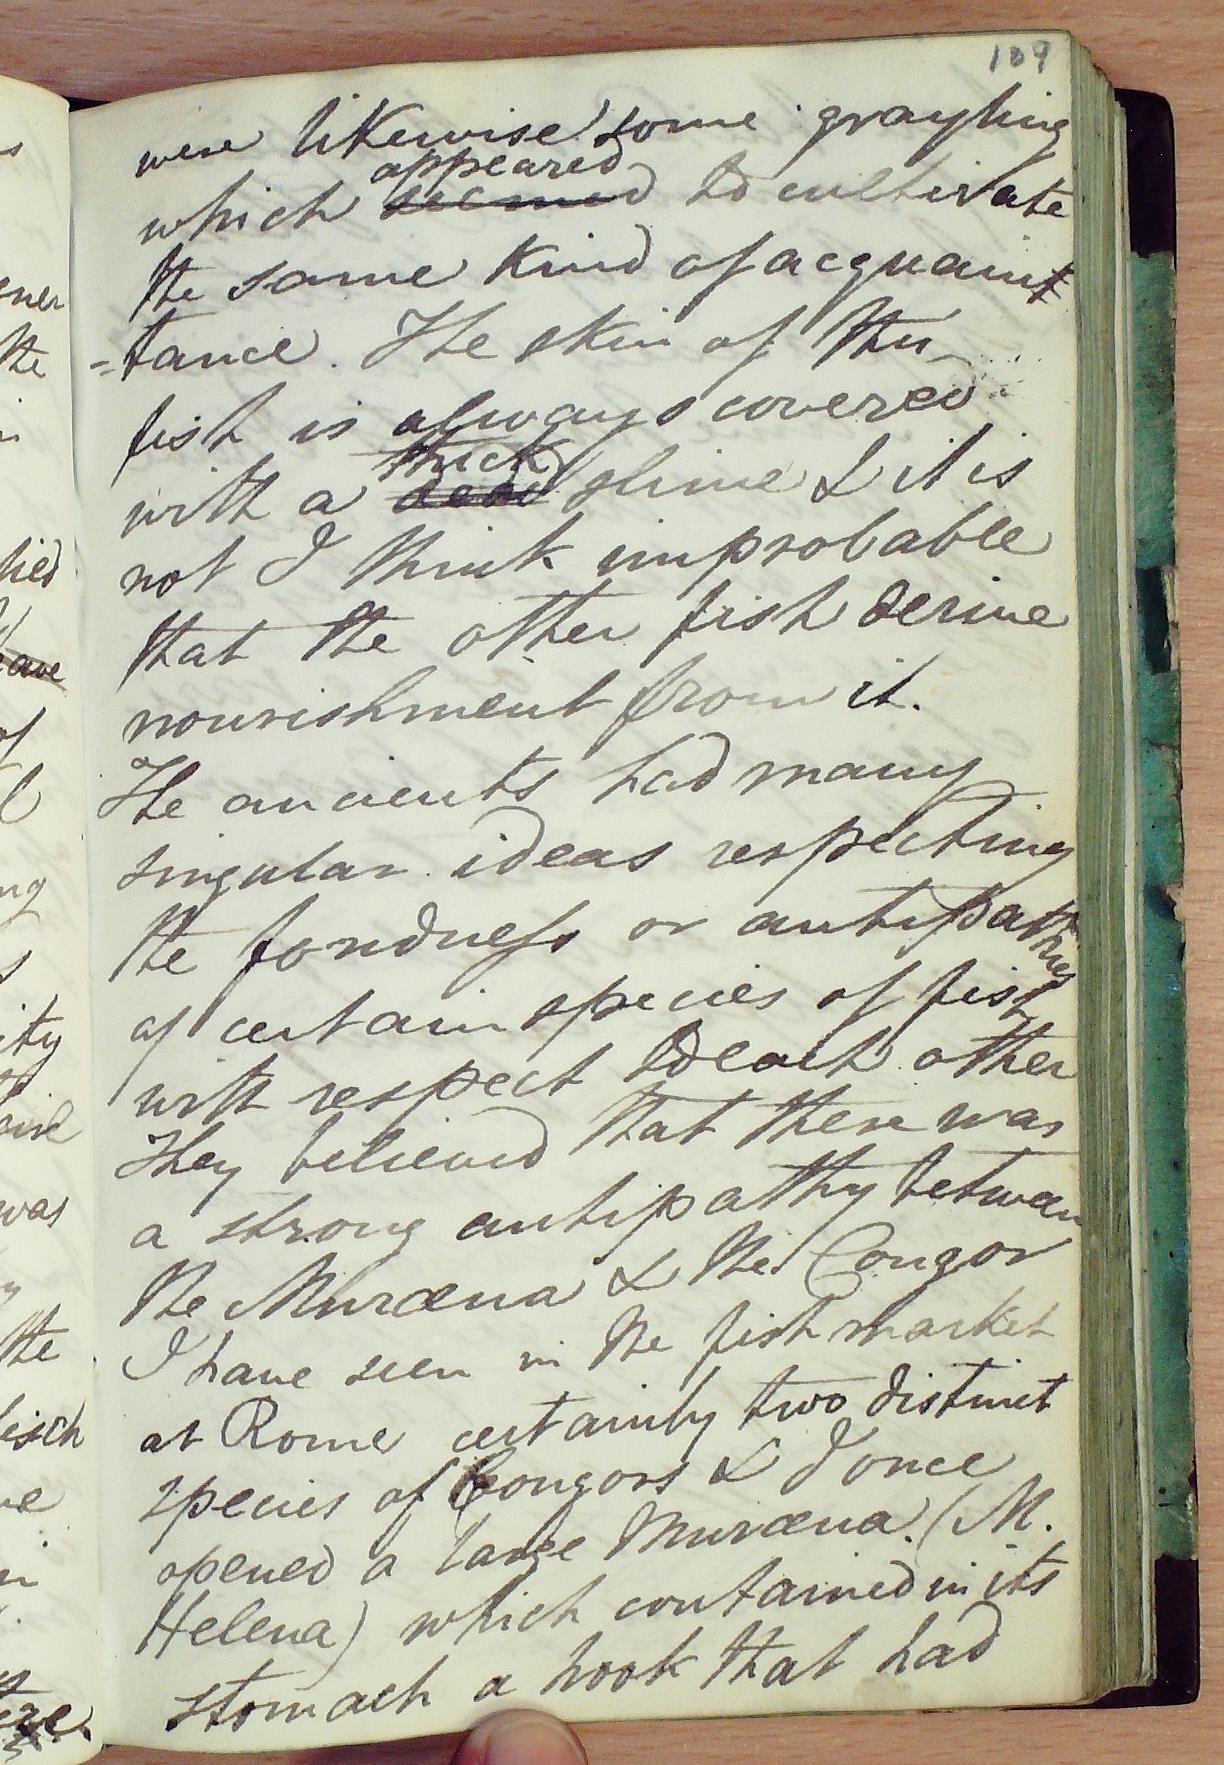 109
were likewise some grayling
appeared
which seemed to cultivate
the same kind of acquaint
=tance. The skin of this
fish is always covered
thick
with a dead slime & it is
not I think improbable
that the other fish derive
nourishment from it.
The ancients had many
singular ideas respecting
the fondness or antipathies
of certain species of fish
with respect to each other
They believed that there was
a strong antipathy between
the Muræna & the Congor
I have seen in the fish market
at Rome certainly two distinct
species of Congors & I once
opened a large Muræna. (M.
Helena) which contained in its
stomach a hook that had